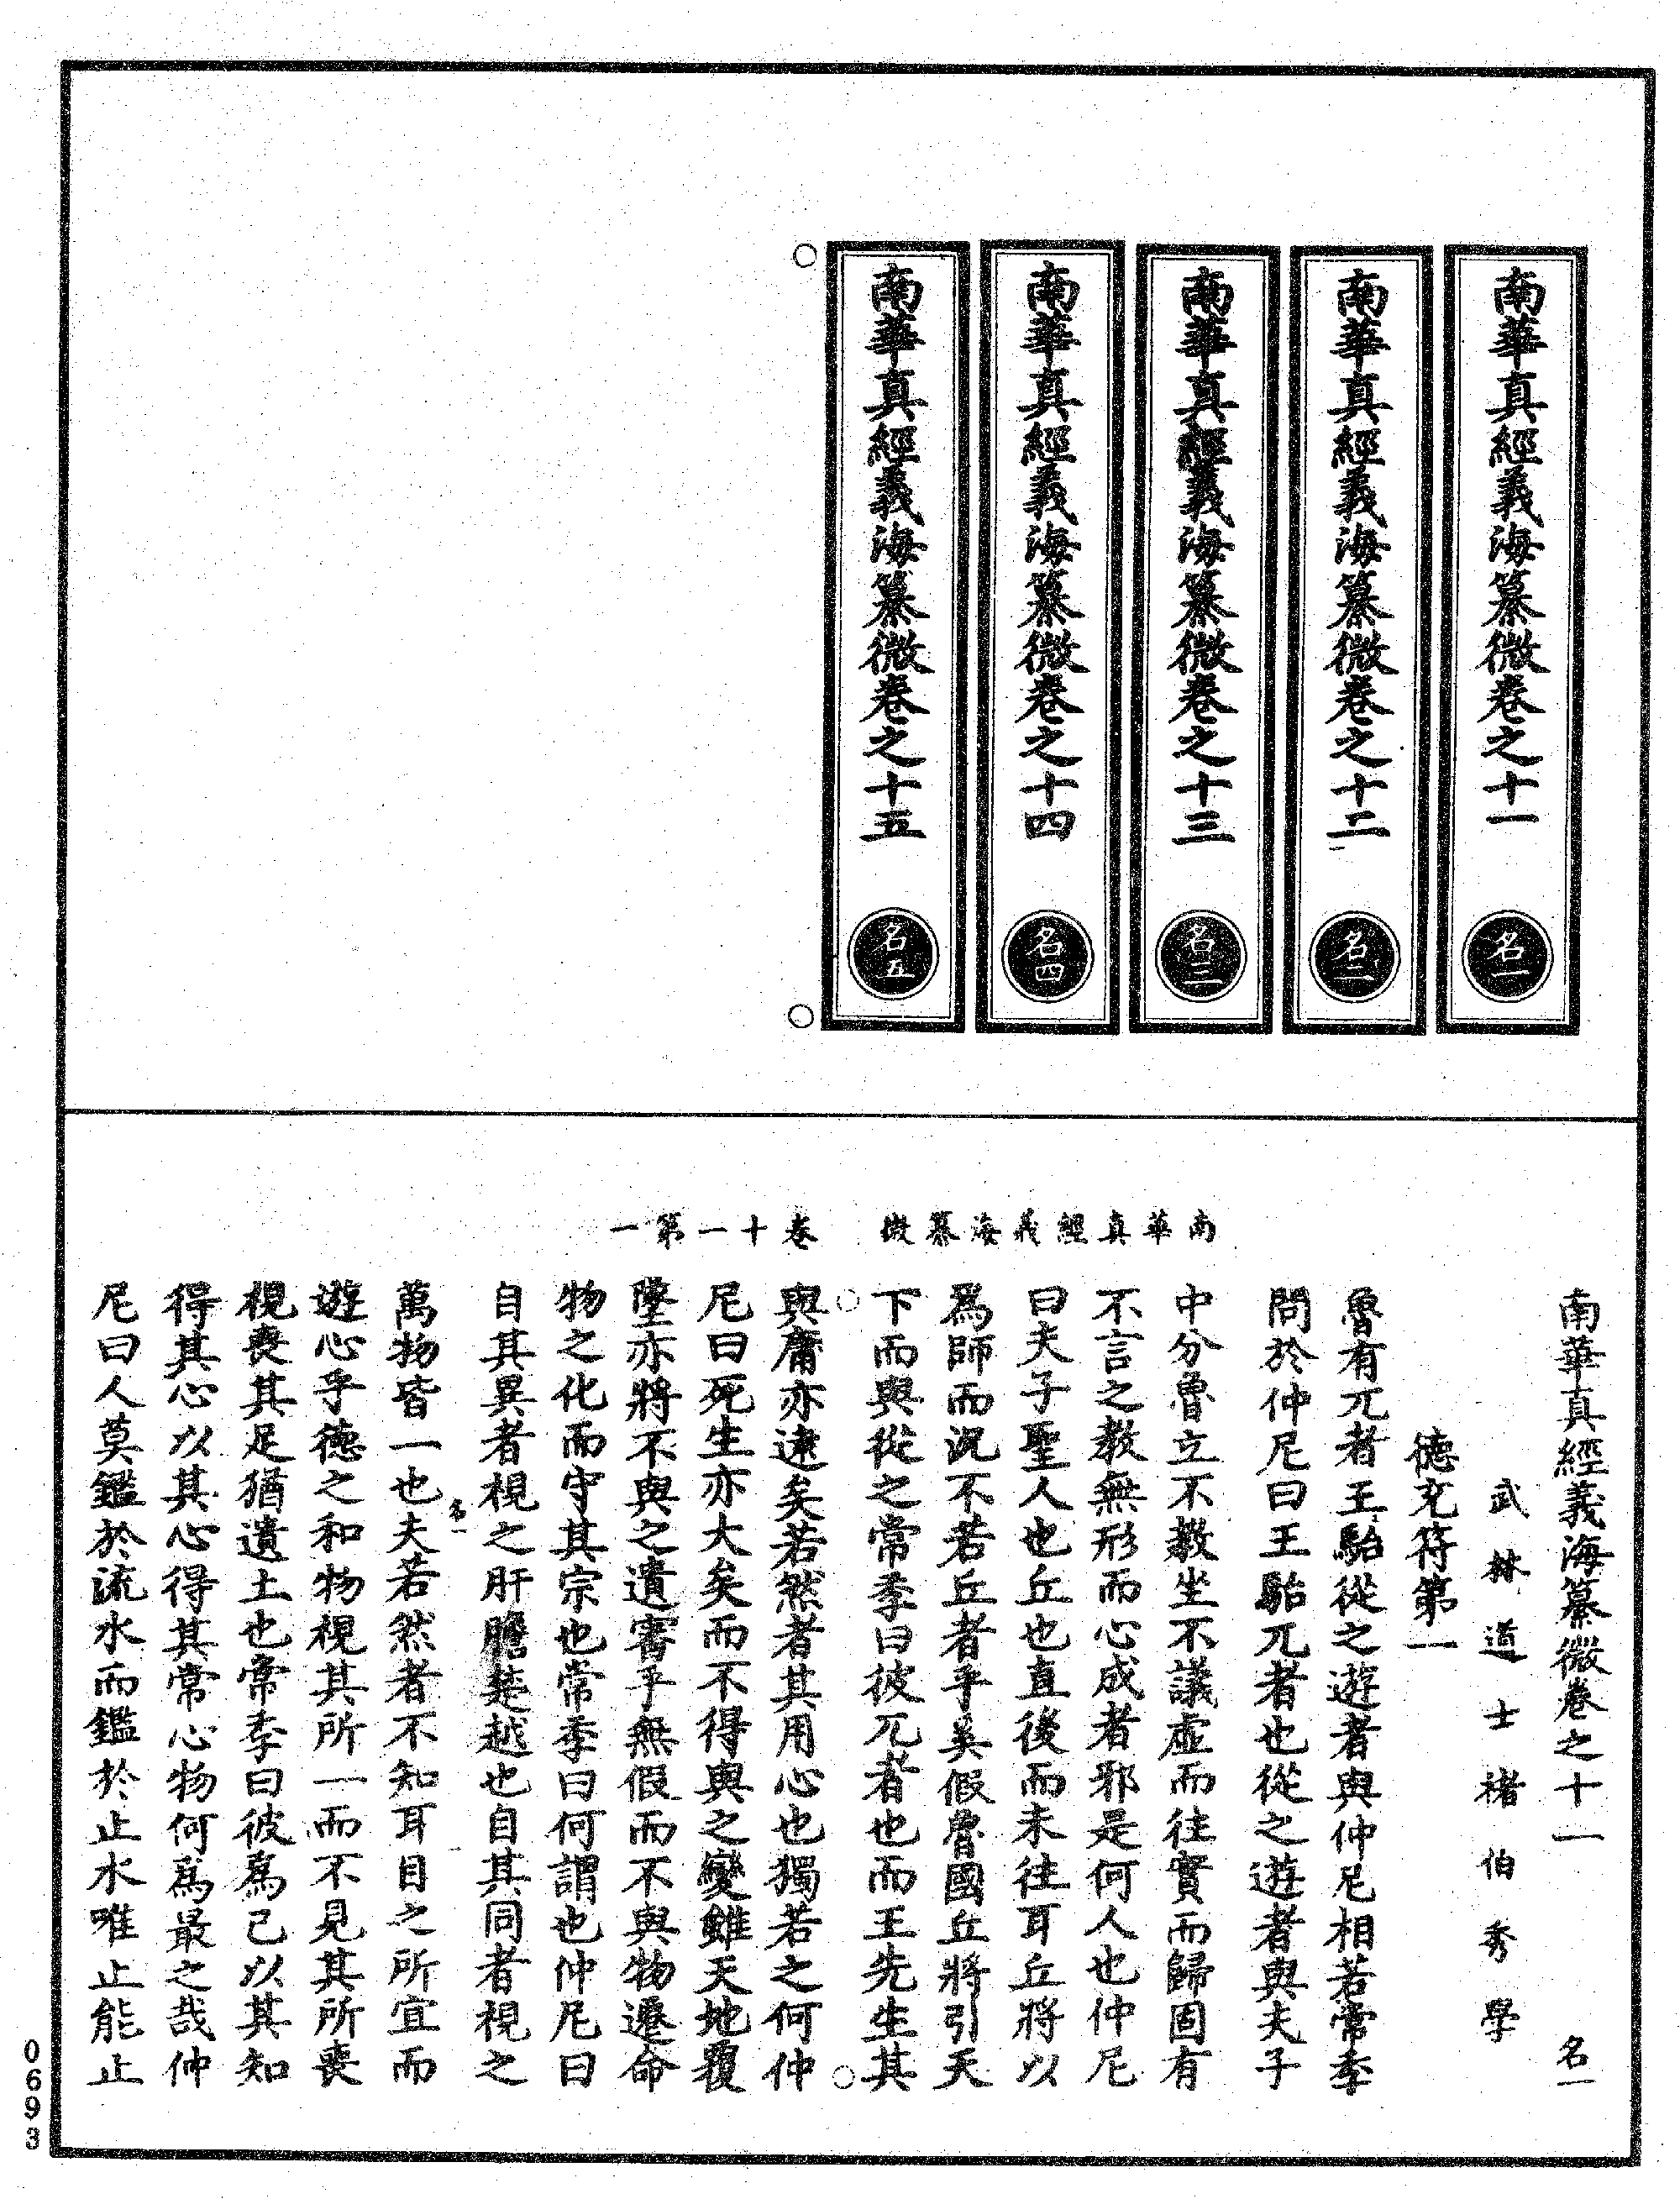 南華真經義海纂微卷之十一
名一
南華真經義海纂微卷之十二
名二
南華真經義海纂微卷之十三
名三
南華真經義海纂微卷之十四
名四
南華真經義海纂微卷之十五
名五
南華真經義海纂微 卷十一第一
南華真經義海纂微卷之十一 名一
武林道士褚伯秀學
德充符第一
魯有兀者王駘從之遊者與仲尼相若常季
問於仲尼曰王駘兀者也從之遊者與夫子
中分魯立不教坐不議虛而往實而歸固有
不言之教無形而心成者邪是何人也仲尼
曰夫子聖人也丘也直後而未往耳丘將以
爲師而況不若丘者乎奚假魯國丘將引天
下而與從之常季曰彼兀者也而王先生其
與庸亦遠矣若然者其用心也獨若之何仲
尼曰死生亦大矣而不得與之變雖天地覆
墜亦將不與之遺審乎無假而不與物遷命
物之化而守其宗也常季曰何謂也仲尼曰
自其異者視之肝膽楚越也自其同者視之
名一
萬物皆一也夫若然者不知耳目之所宜而
遊心乎德之和物視其所一而不見其所喪
視喪其足猶遺土也常季曰彼爲己以其知
得其心以其心得其常心物何爲最之哉仲
尼曰人莫鑑於流水而鑑於止水唯止能止
0693